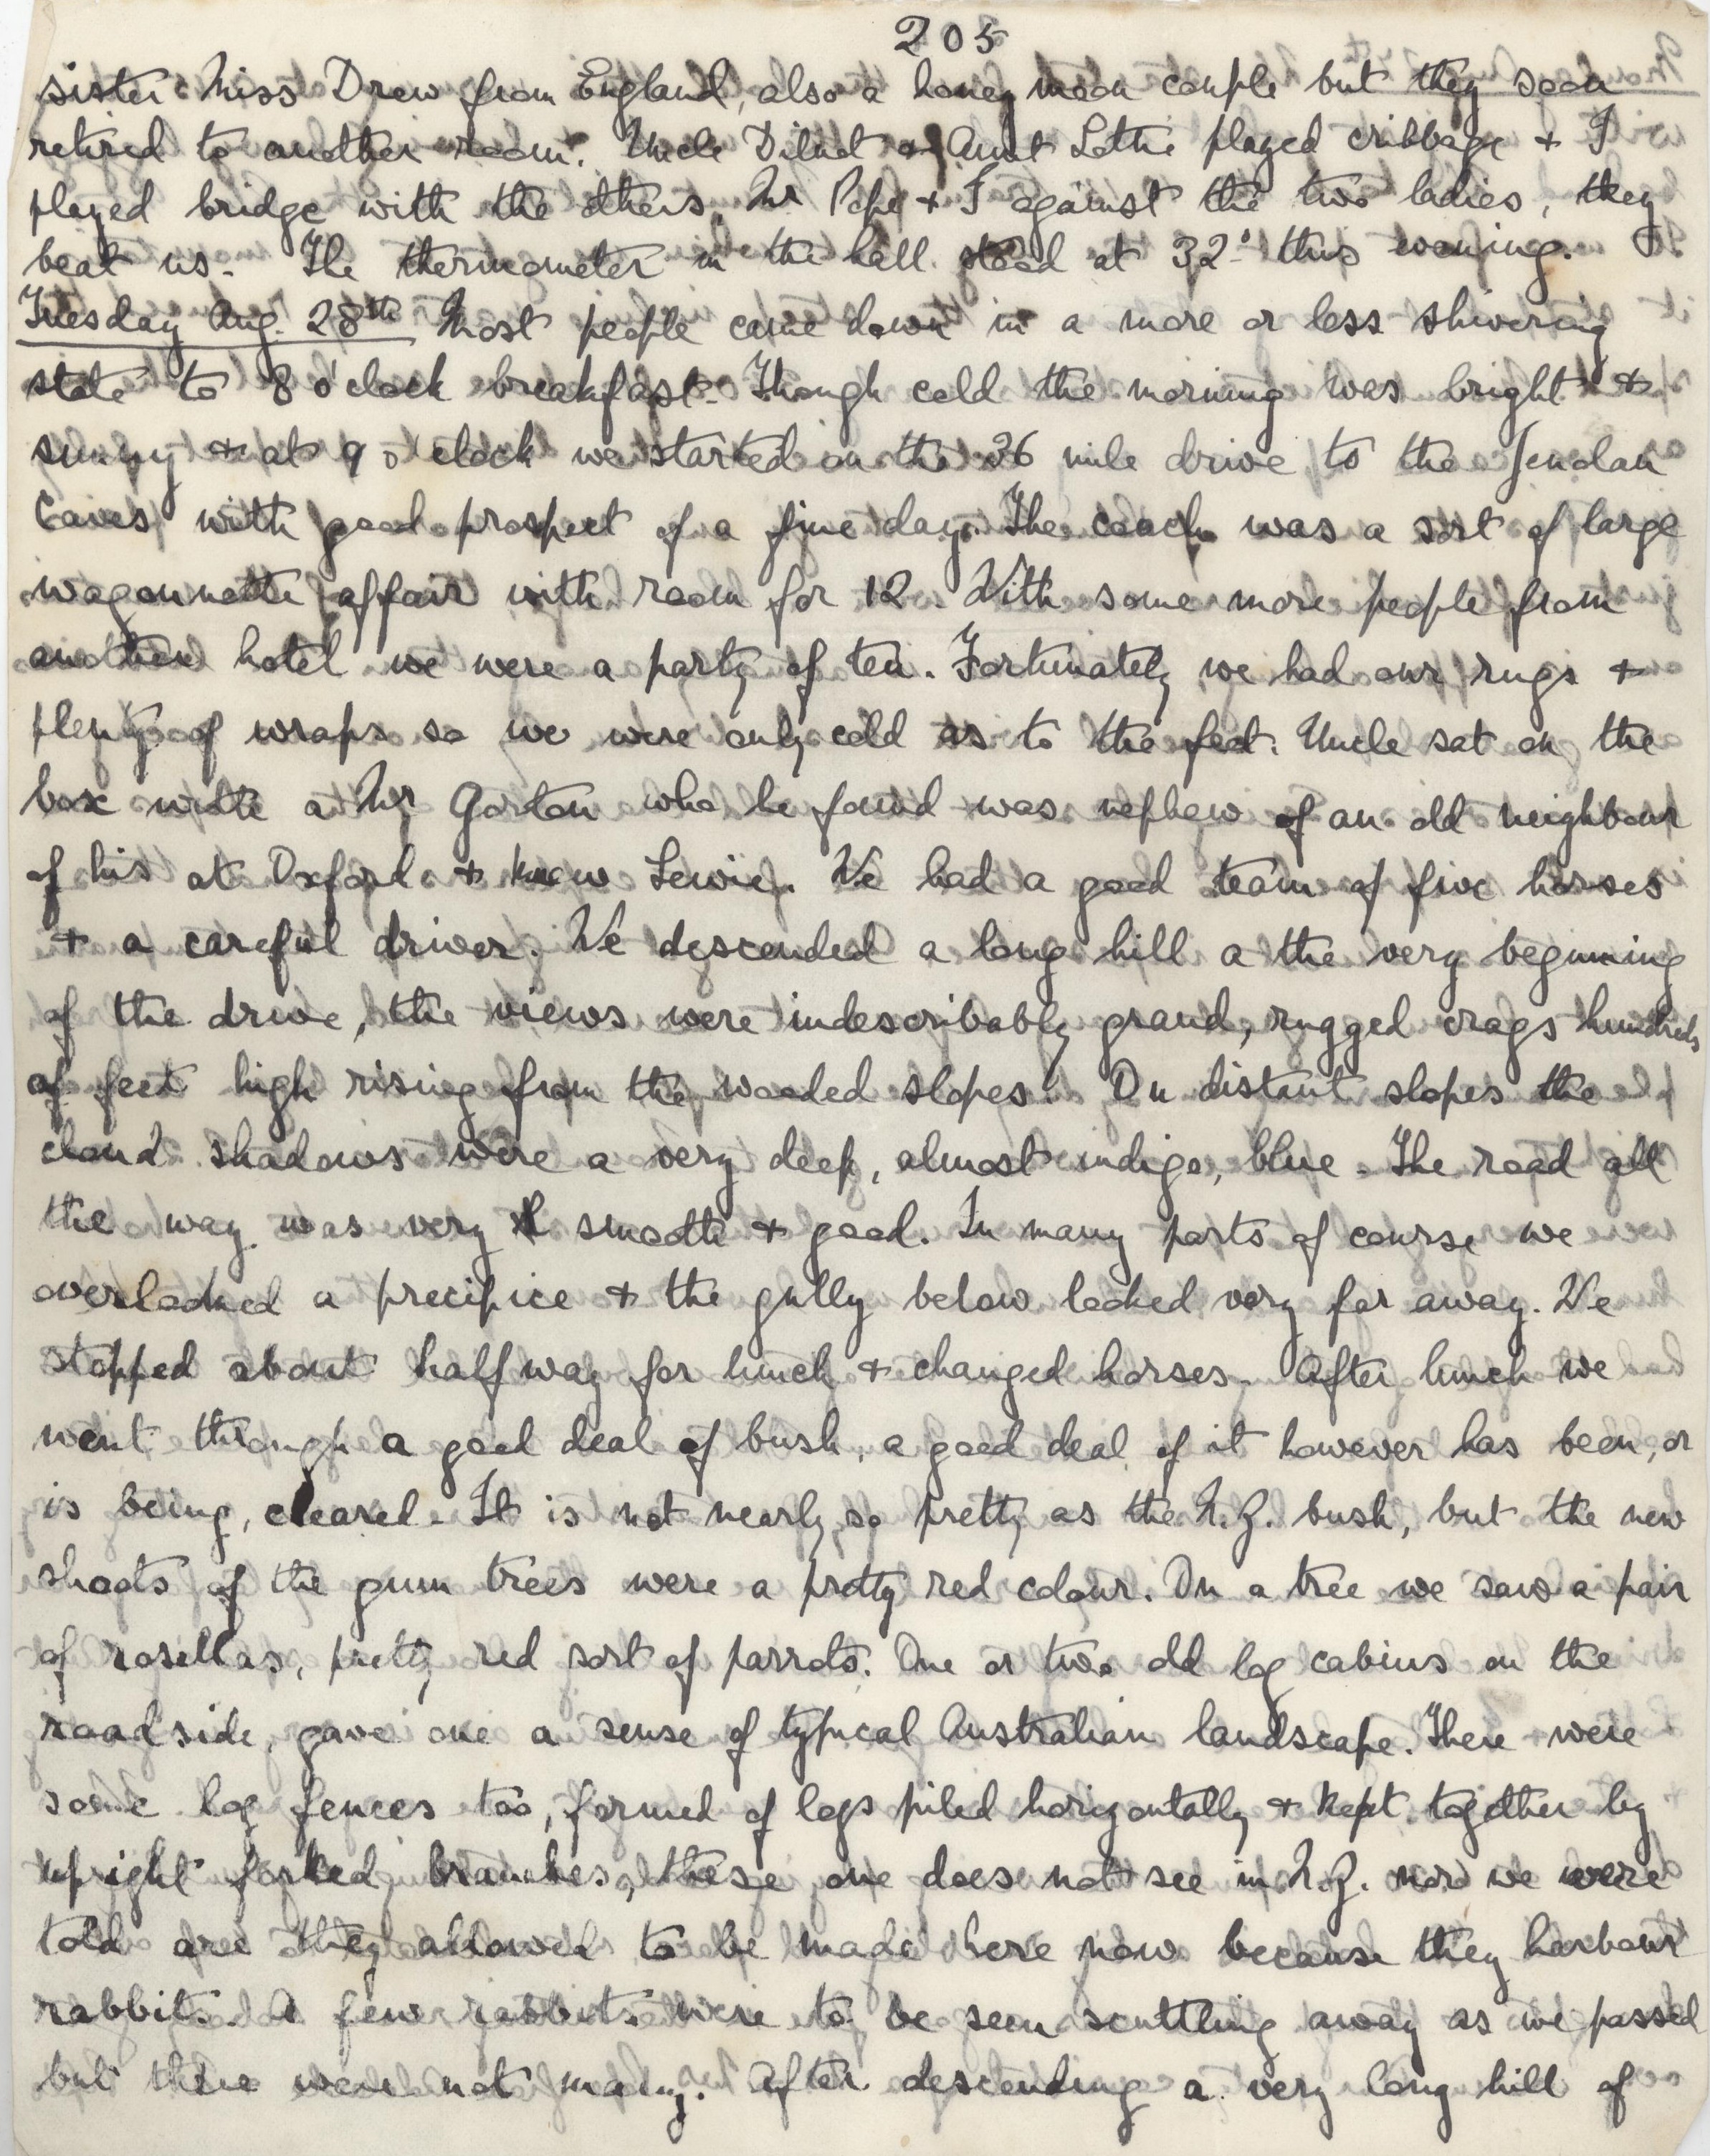 205
sister Miss Drew from England, also a honey moon couple but they soon
retired to another room. Uncle Dilnot & Aunt Lottie played cribbage & I
played bridge with the others, Mr Pope & I against the two ladies, they
beat us. The thermometer in the hall stood at 32° this evening.
Tuesday Aug. 28th Most people came down in a more or less shivering
state to 8 o'clock breakfast. Though cold the morning was bright &
sunny & at 9 o'clock we started on the 36 mile drive to the Jenolan
Caves with good prospect of a fine day. The coach was a sort of large
wagonnette affair with room for 12. With some more people from
another hotel we were a party of ten. Fortunately we had our rugs &
plenty of wraps so we were only cold as to the feet. Uncle sat on the
box with a Mr Gorton who he found was nephew of an old neighbour
of his at Oxford & knew Lewie. We had a good team of five horses
& a careful driver. We descended a long hill a the very beginning
of the drive, the views were indescribably grand, rugged crags hundreds
of feet high rising from the wooded slopes. On distant slopes the
cloud shadows were a very deep, almost indigo, blue. The road all
the way was very smooth & good. In many parts of course we
overlooked a precipice & the gully below looked very far away. We
stopped about half way for lunch & changed horses. After lunch we
went through a good deal of bush, a good deal of it however has been, or
is being, cleared. It is not nearly so pretty as the N.Z. bush, but the new
shoots of the gum trees were a pretty red colour. On a tree we saw a pair
of rosellas, pretty red sort of parrots. One or two old log cabins on the
roadside, gave one a sense of typical Australian landscape. There were
some log fences too, formed of logs piled horizontally & kept together by
upright forked branches, these one does not see in N.Z. nor we were
told are they allowed to be made here now because they harbour
rabbits. A few rabbits were to be seen scuttling away as we passed
but there were not many. After descending a very long hill of